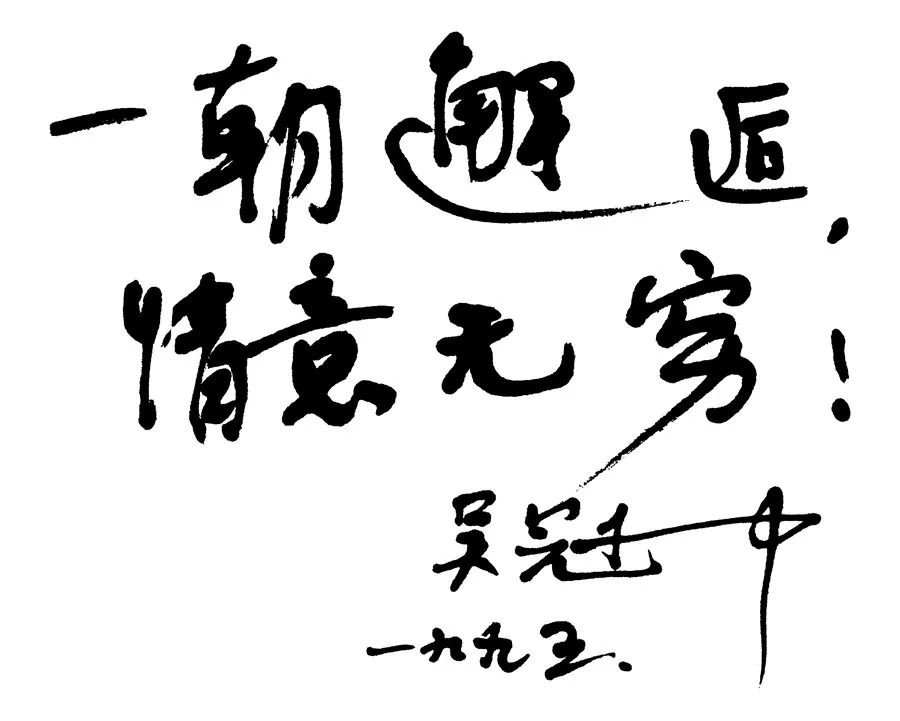 一朝邂逅，
情意无穷！
吴冠中
一九九五.